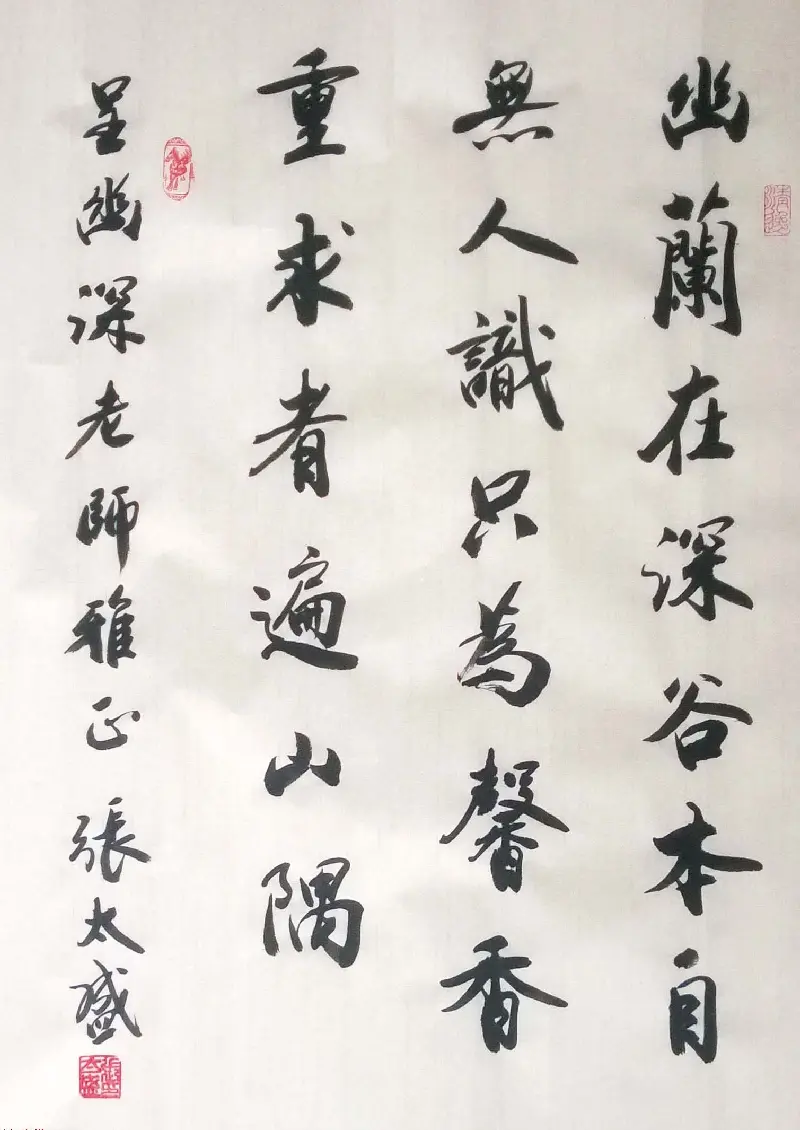 幽蘭在深谷本自
無人識只為馨香
重求者遍山隅
呈幽深老師雅正 張太盛